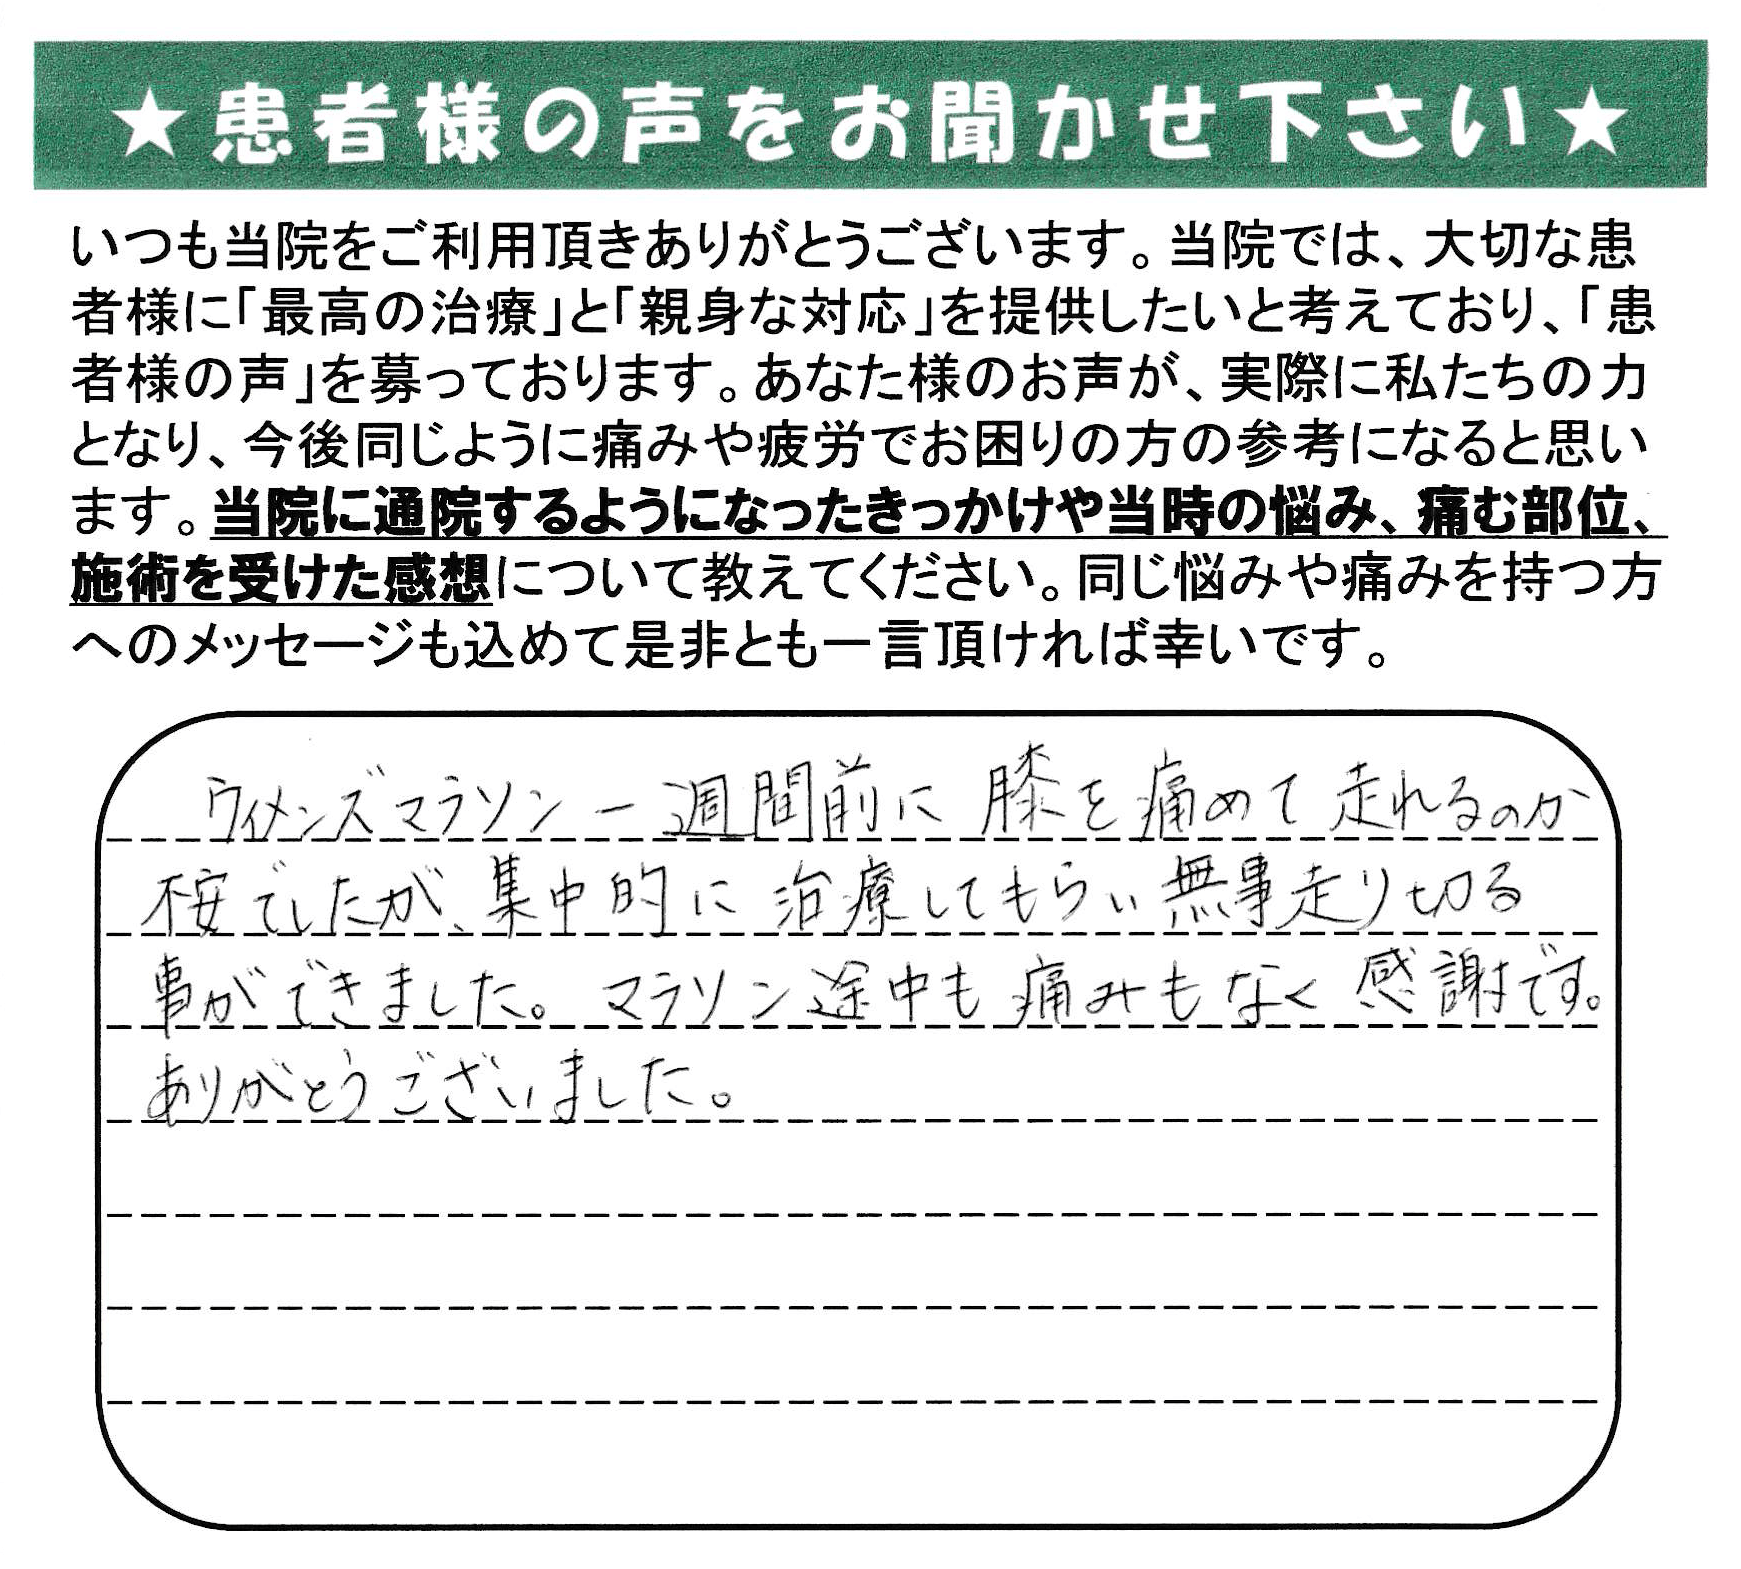 ★患者様の声をお聞かせ下さい★
いつも当院をご利用頂きありがとうございます。当院では、大切な患
者様に「最高の治療」と「親身な対応」を提供したいと考えており、「患
者様の声」を募っております。あなた様のお声が、実際に私たちの力
となり、今後同じように痛みや疲労でお困りの方の参考になると思い
ます。当院に通院するようになったきっかけや当時の悩み、痛む部位、
施術を受けた感想について教えてください。同じ悩みや痛みを持つ方
へのメッセージも込めて是非とも一言頂ければ幸いです。
ウィメンズマラソン一週間前に膝を痛めて走れるのか
不安でしたが、集中的に治療してもらい無事走り切る
事ができました。マラソン途中も痛みもなく感謝です。
ありがとうございました。